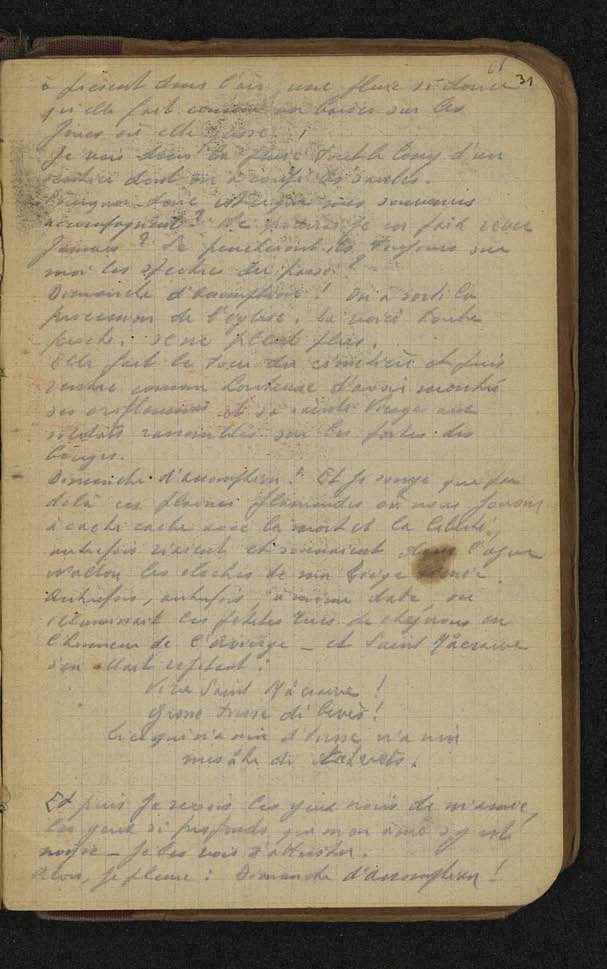 61
31
à présent dans l'air une pluie si douce
qu'elle fait comme un baiser sur les
joues où elle pose.
Je vais dans la pluie tout le long d'un
sentier dont on a coupé les saules.
Pourquoi donc est-ce que mes souvenirs
m'accompagnent? Ne pourrai-je en faire
jamais? Se pencheront-ils toujours sur
moi les spectres du passé?
Dimanche d'assomption! On a sorti la
procession de l'église, la voici toute
proche, il ne pleut plus.
Elle fait le tour du cimetière et puis
rentre comme honteuse d'avoir montré
ses oriflammes et sa sainte Vierge aux
soldats rassemblés sur les portes des
bouges.
Dimanche d'assomption! Et je songe que par
delà ces plaines flamandes où nous jouons
à cache cache avec la mort et la liberté,
autrefois riaient et sonnaient dans l'
wallon les cloches de mon Liège
Autrefois, autrefois, à même date, on
illuminait les petites rues de chez nous en
l'honneur de la vierge - et Saint Mâcrawe
s'en allait répétant:
Vive Saint Mâcrawe!
Grosse trusse di
Li ci qui n'a nin d'trusse n'a nin
mesâhe di

Et puis je revois les yeux noirs de m'amie,
les yeux si profonds que mon âme s'y est
noyée - je les vois s'attrister.
Alors, je pleure: Dimanche d'assomption!